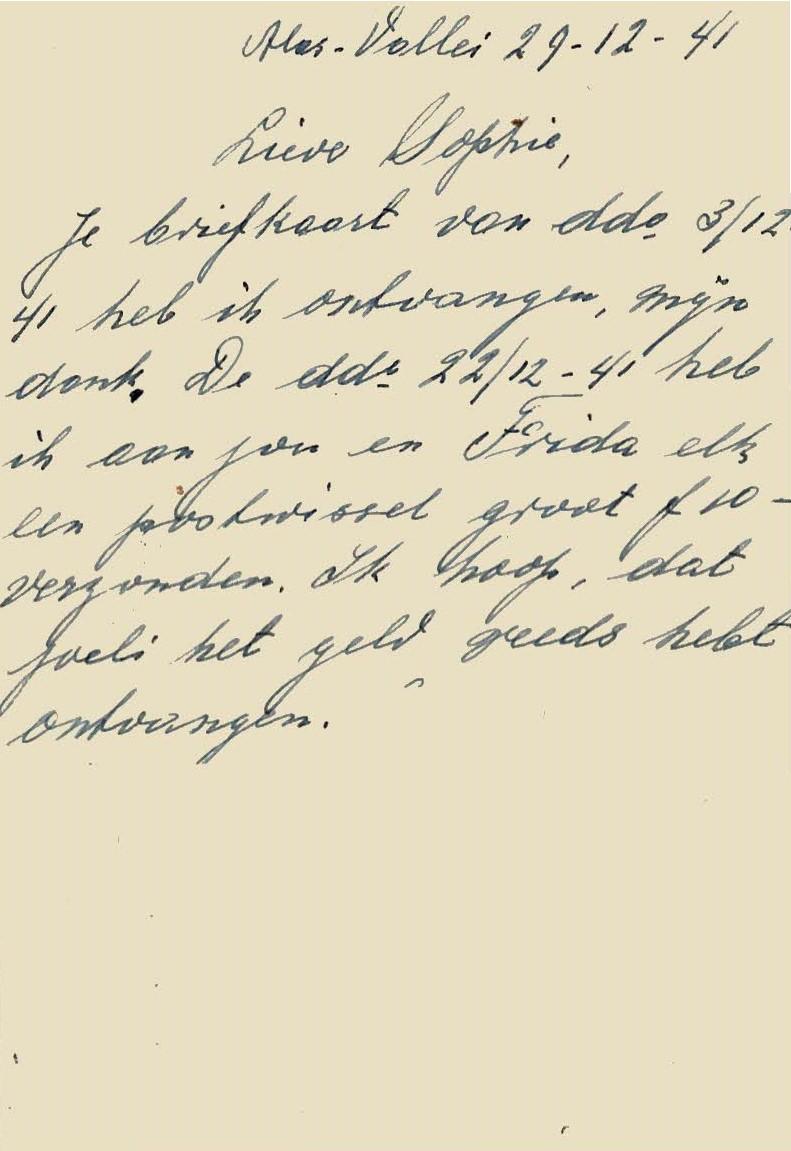 Alas-Vallei 29-12-41
Lieve Sophie,
Je briefkaart van ddo 3/12
41 heb ik ontvangen, mijn
dank. De ddo 22/12-41 heb
ik aan jou en Frida elk
een postwissel groot f 10 -
verzonden. Ik hoop, dat
joeli het geld reeds hebt
ontvangen.